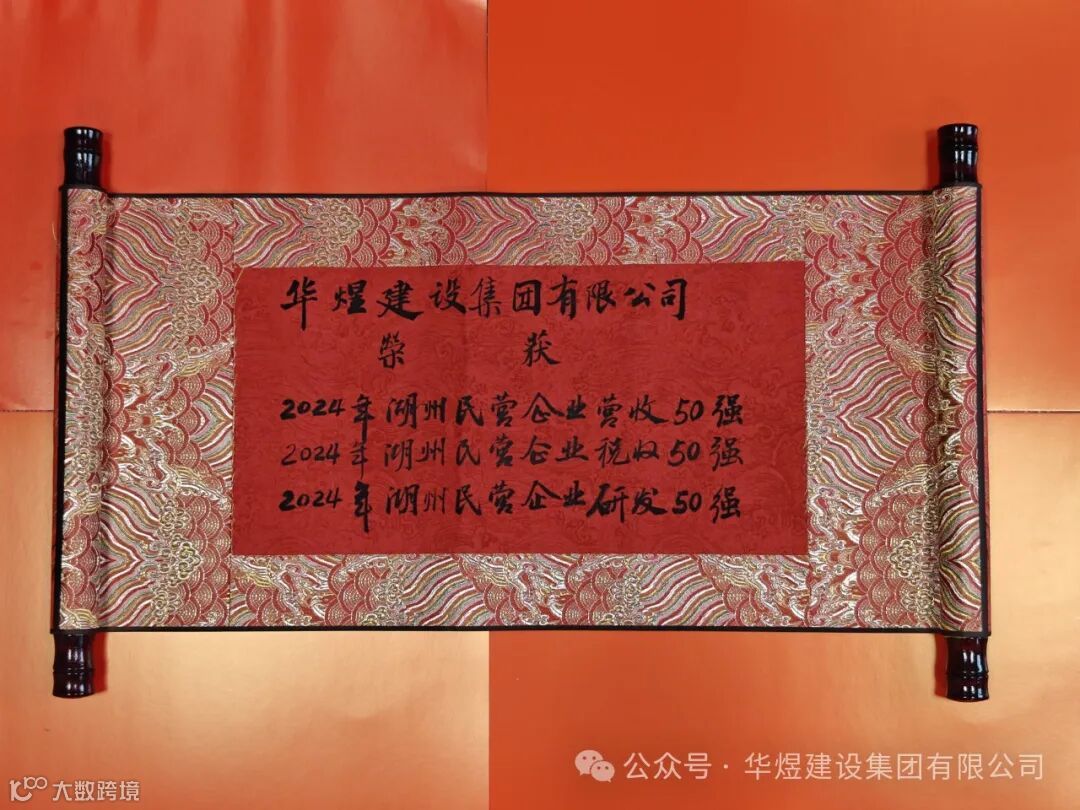 华煜建设集团有限公司
荣获
2024年湖州民营企业营收50强
2024年湖州民营企业税收50强
2024年湖州民营企业研发50强
公众号·华煜建设集团有限公司
大数跨境